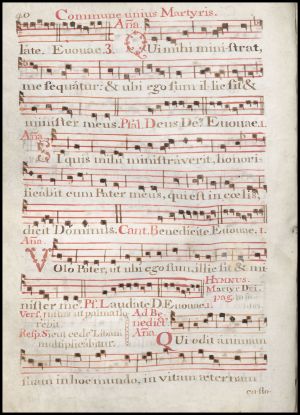 40 Commune unius Martyris.
Aña.
late. Euouae. 3. Qui mihi ministrat,
me sequatur: & ubi ego sum illic sit &
minister meus. Psal. Deus De9 Euouae. 1.
Aña
Si quis mihi ministraverit, honori-
ficabit eum Pater meus, qui est in coelis,
dicit Dominus. Cant. Benedicite Euouae. 1.
Aña.
Volo Pater, ut ubi ego sum, illic sit & mi-
nister me9. Ps. Laudate D Euouae. 1.
HYMNUS.
Martyr Dei
pag.
Vers. Justus ut palma flo-
rebit.
Resp. Sicut cedr9 Libani
multiplicabitur.
Ad Be-
nedict9
Aña.
Qui odit animam
suam in hoc mundo, in vitam aeternam
custo-